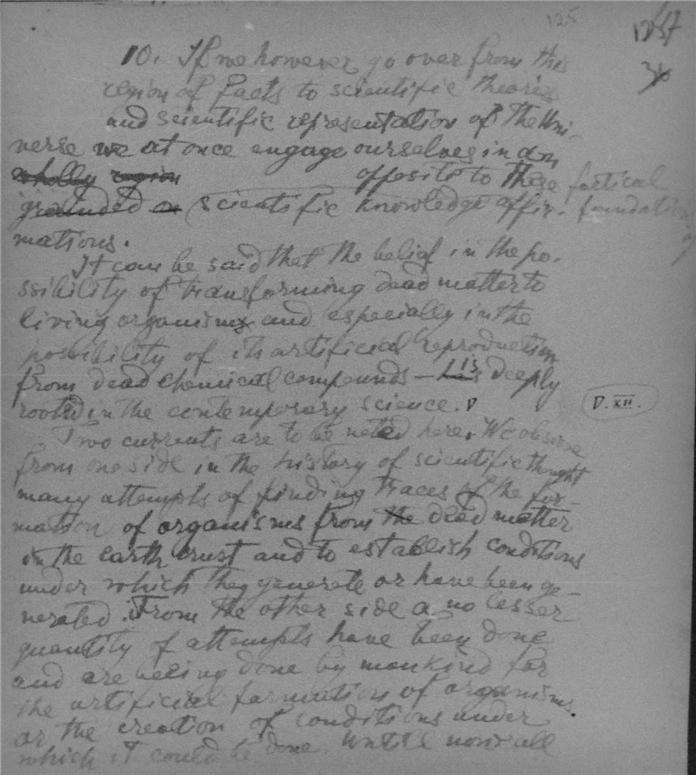 125
10. If we however go over from this
region of facts to scientific theories
and scientific representation of the Uni-
verse we at once engage ourselves in an
wholly region opposite to these factical
grounded on scientific knowledge affir- foundation
mations.
It can be said that the belief in the po-
ssibility of transforming dead matter to
living organisms and especially in the
possibility of its artificial reproduction
from dead chemical compounds — is deeply
rooted in the contemporary science. V
V. XII.
Two currents are to be noted here. We observe
from one side in the history of scientific thought
many attempts of finding traces of the for-
mation of organisms from the dead matter
in the earth crust and to establish conditions
under which they generate or have been ge-
nerated. From the other side a no lesser
quantity of attempts have been done
and are being done by mankind for
the artificial formation of organisms.
or the creation of conditions under
which it could be done. Untill now all